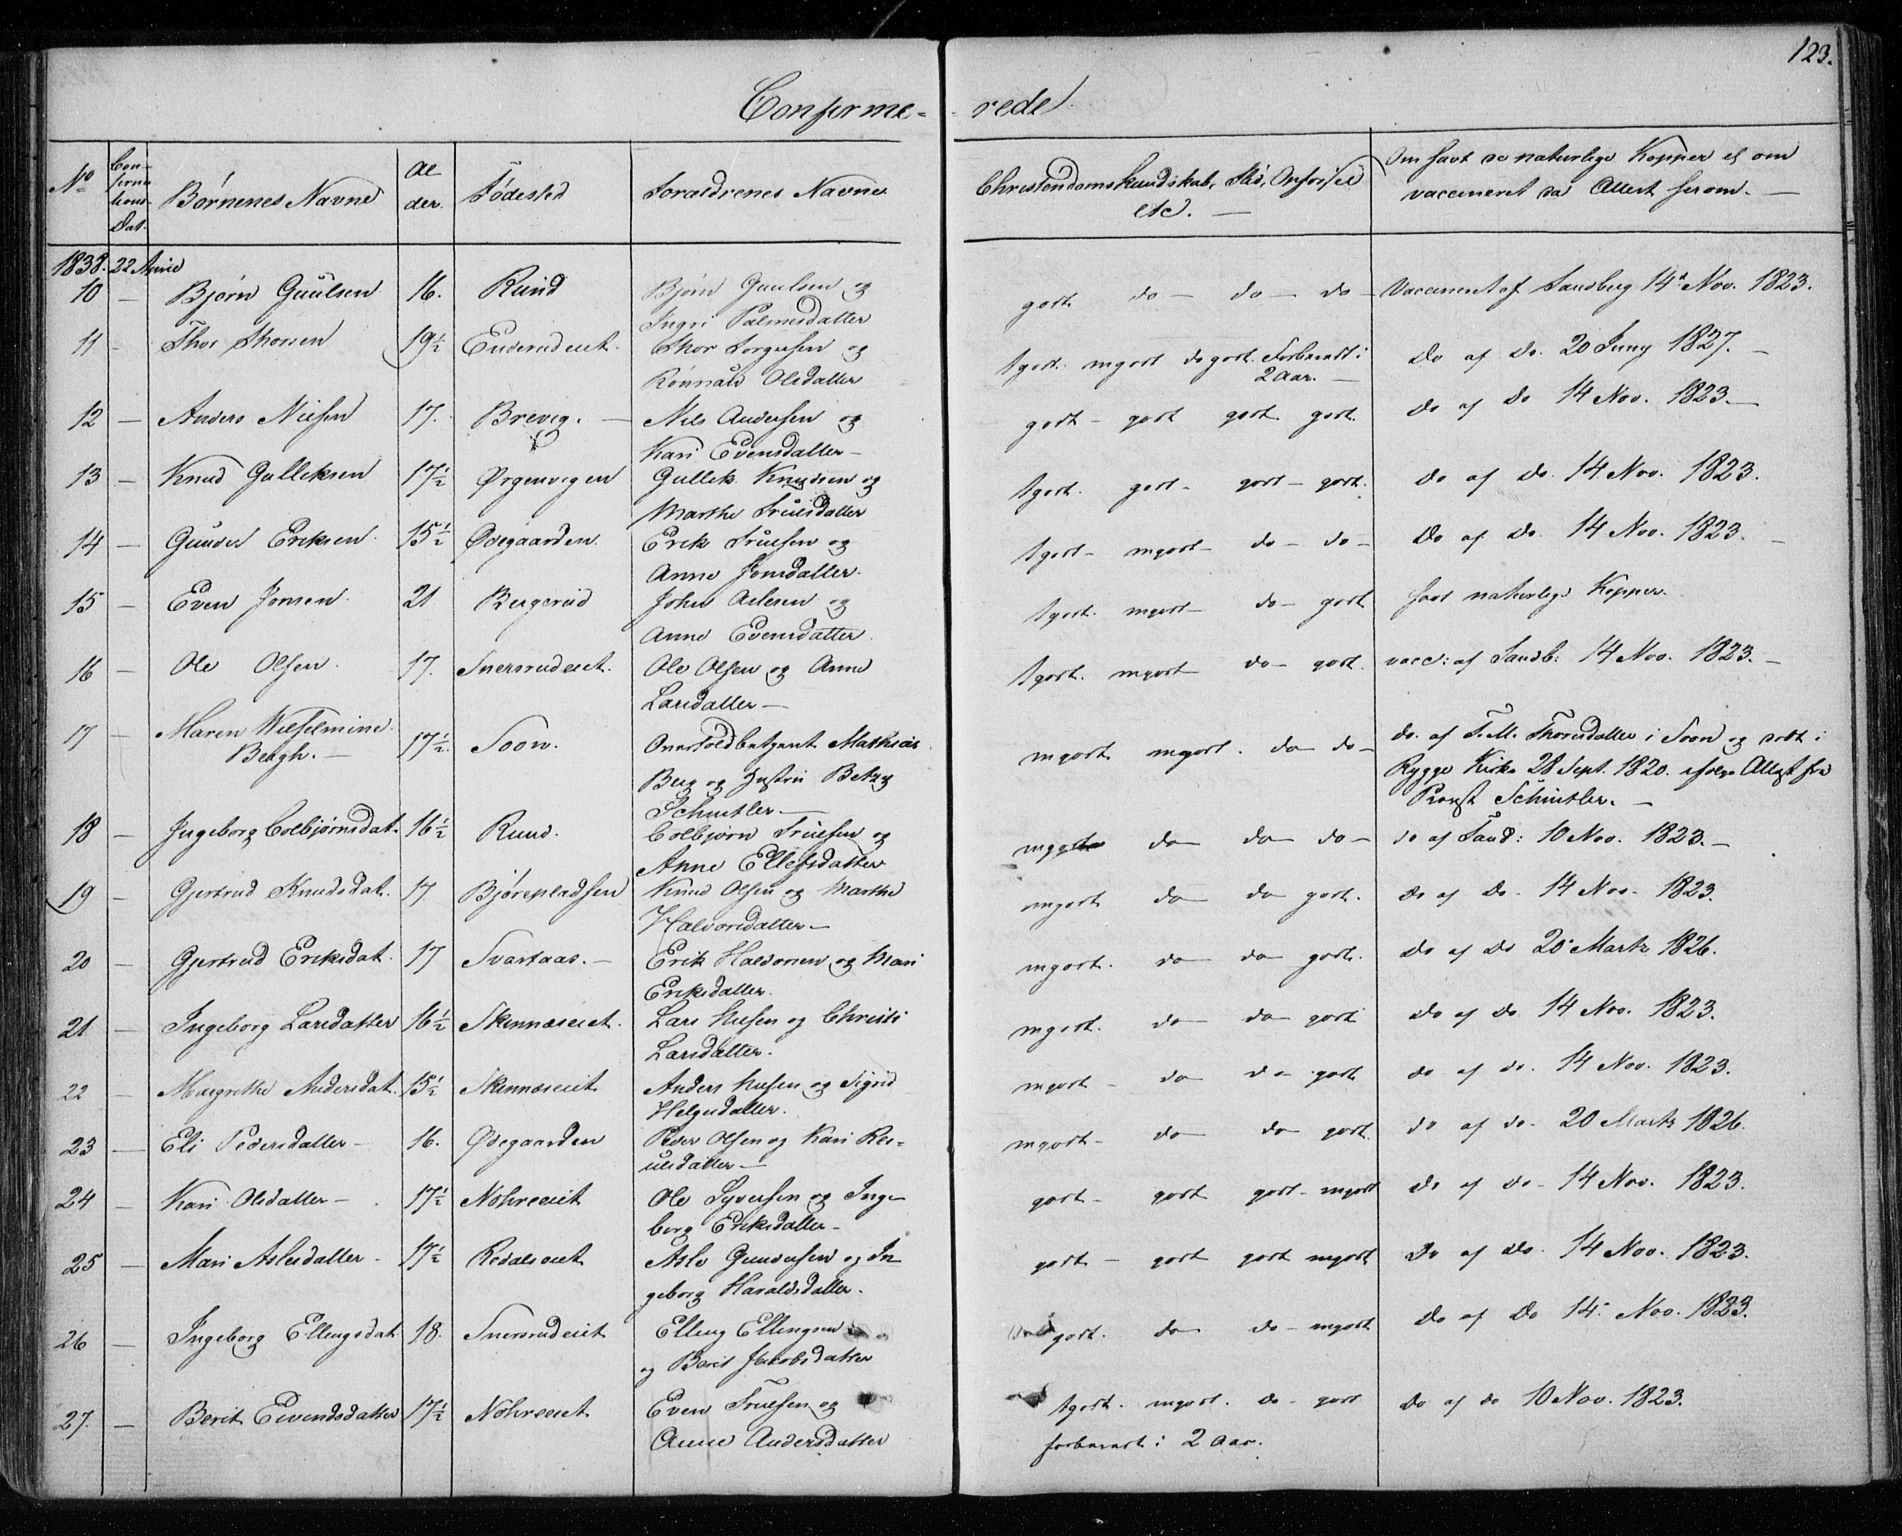 123.
Confirme- rede
No Confirmations Dat. Børnenes Navne Alder. Fødested Foraldrenes Navne Christendomskundskab, Flid, Opførsel etc. — Om havt de naturlige Kopper el om vaccineret da Attest herom. —
1838. 22 April
10 — Bjørn Guulsen 16. Ruud Bjørn Guulsen og godt do — do — do — Vaccineret af Sandberg 14d Nov. 1823.
Ingri Palmesdatter
11 — Thor Thorsen 19½ Enderudeiet. Thor Torgersen og tgodt. mgodt do godt. Forberedt i 2 Aar. — do af do. 20 Juny 1827. —
Rønnaug Olsdatter
12 — Anders Nielsen 17. Brevig. — Nils Andersen og godt — godt godt godt. do af do 14 Nov. 1823. —
Kari Evensdatter —
13 — Knud Gulleksen 17½ Ørgenvigen Gullek Knudsen og tgodt. godt — godt — godt. do af do. 14 Nov. 1823.
Marthe Truelsdatter
14 — Gunder Eriksen 15½ Ødegaarden Erik Truelsen og tgodt — mgodt — do — do — Do af Do. 14 Nov. 1823. —
Anne Jonsdatter.
15 — Even Jonsen 21 Bergerud John Aslesen og tgodt. mgodt — do — godt havt naturlige Kopper.
Anne Evensdatter.
16 — Ole Olsen. 17. Snersrudeiet. Ole Olsen og Anne tgodt. mgodt do — godt. vacc: af Sandb: 14 Nov. 1823. —
Larsdatter —
17 — Maren Wilhelmine Bergh. — 17½. Soon. Overtoldbetjent Mathias mgodt mgodt. do do — do. af F. M. Thorsdatter i Soon og døbt i
Berg og Hustru Betzy Rygge Kirke 28 Sept. 1820. ifølge Attest fra
Schintler — Provst Schintler. —
18 — Ingeborg Colbjørnsdat. 16½ Ruud. Colbjørn Truelsen og mgodt do do do — do af Sand: 10 Nov. 1823. —
Anne Ellefsdatter
19 — Gjertrud Knudsdat. 17 Bjørepladsen Knud Olsen og Marthe mgodt do do godt. do af do. 14 Nov. 1823.
Halvorsdatter —
20 — Gjertrud Eriksdat. 17 Svartaas. — Erik Halvorsen og Mari mgodt. do do godt. do af do 20 Martz 1826.
Eriksdatter.
21 — Ingeborg Larsdatter 16½ Skinnæseiet. Lars Nilsen og Christi mgodt. do do godt do af do 14 Nov. 1823.
Larsdatter.
22 — Margrethe Andersdat. 15½ Skinnæseiet Anders Nilsen og Sigrid mgodt — do do godt do af do. 14 Nov. 1823.
Helgesdatter.
23 — Eli Pedersdatter — 16. Ødegaarden Peder Olsen og Kari Rei- mgodt — do do godt. do af do. 20 Martz 1826.
ulsdatter —
24 — Kari Olsdatter — 17½ Nohreeiet Ole Syversen og Inge- godt — godt godt — mgodt do af do — 14 Nov. 1823.
borg Eriksdatter —
25 — Mari Aslesdatter — 17½ Redalseiet Asle Gundersen og In godt — godt godt mgodt do af do. 14 Nov. 1823.
geborg Haraldsdatter.
26 — Ingeborg Ellingsdat 18. Snersrudeiet Elling Ellingsen godt. do do — mgodt Do af Do 14. Nov. 1823.
og Berit Jakobsdatter
27. — Berit Eivendsdatter 17½ Nohreeiet Even Truelsen og tgodt. mgodt. do — godt do af do 10 Nov. 1823.
Anne Andersdatter forberedt i 2 Aar.